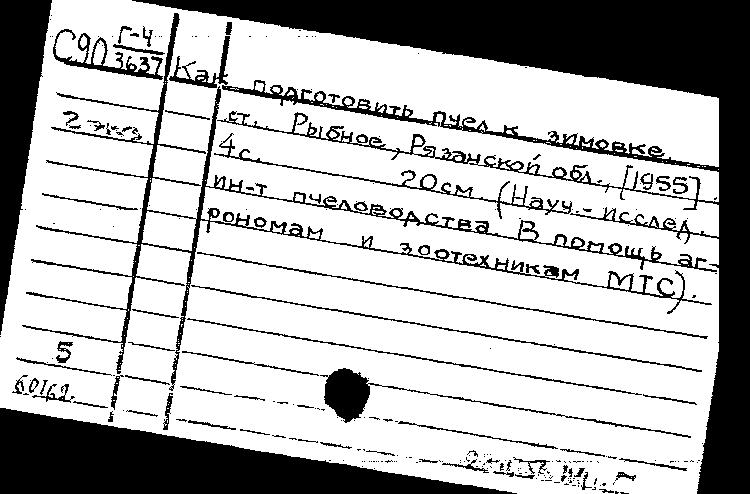 С90 Г-4
3637
Как подготовить пчел к зимовке.
ст. Рыбное, Рязанской обл., [1955].
2 экз.
4 с. 20 см. (Науч.-исслед.
ин-т пчеловодства. В помощь аг-
рономам и зоотехникам МТС).
5
60162.